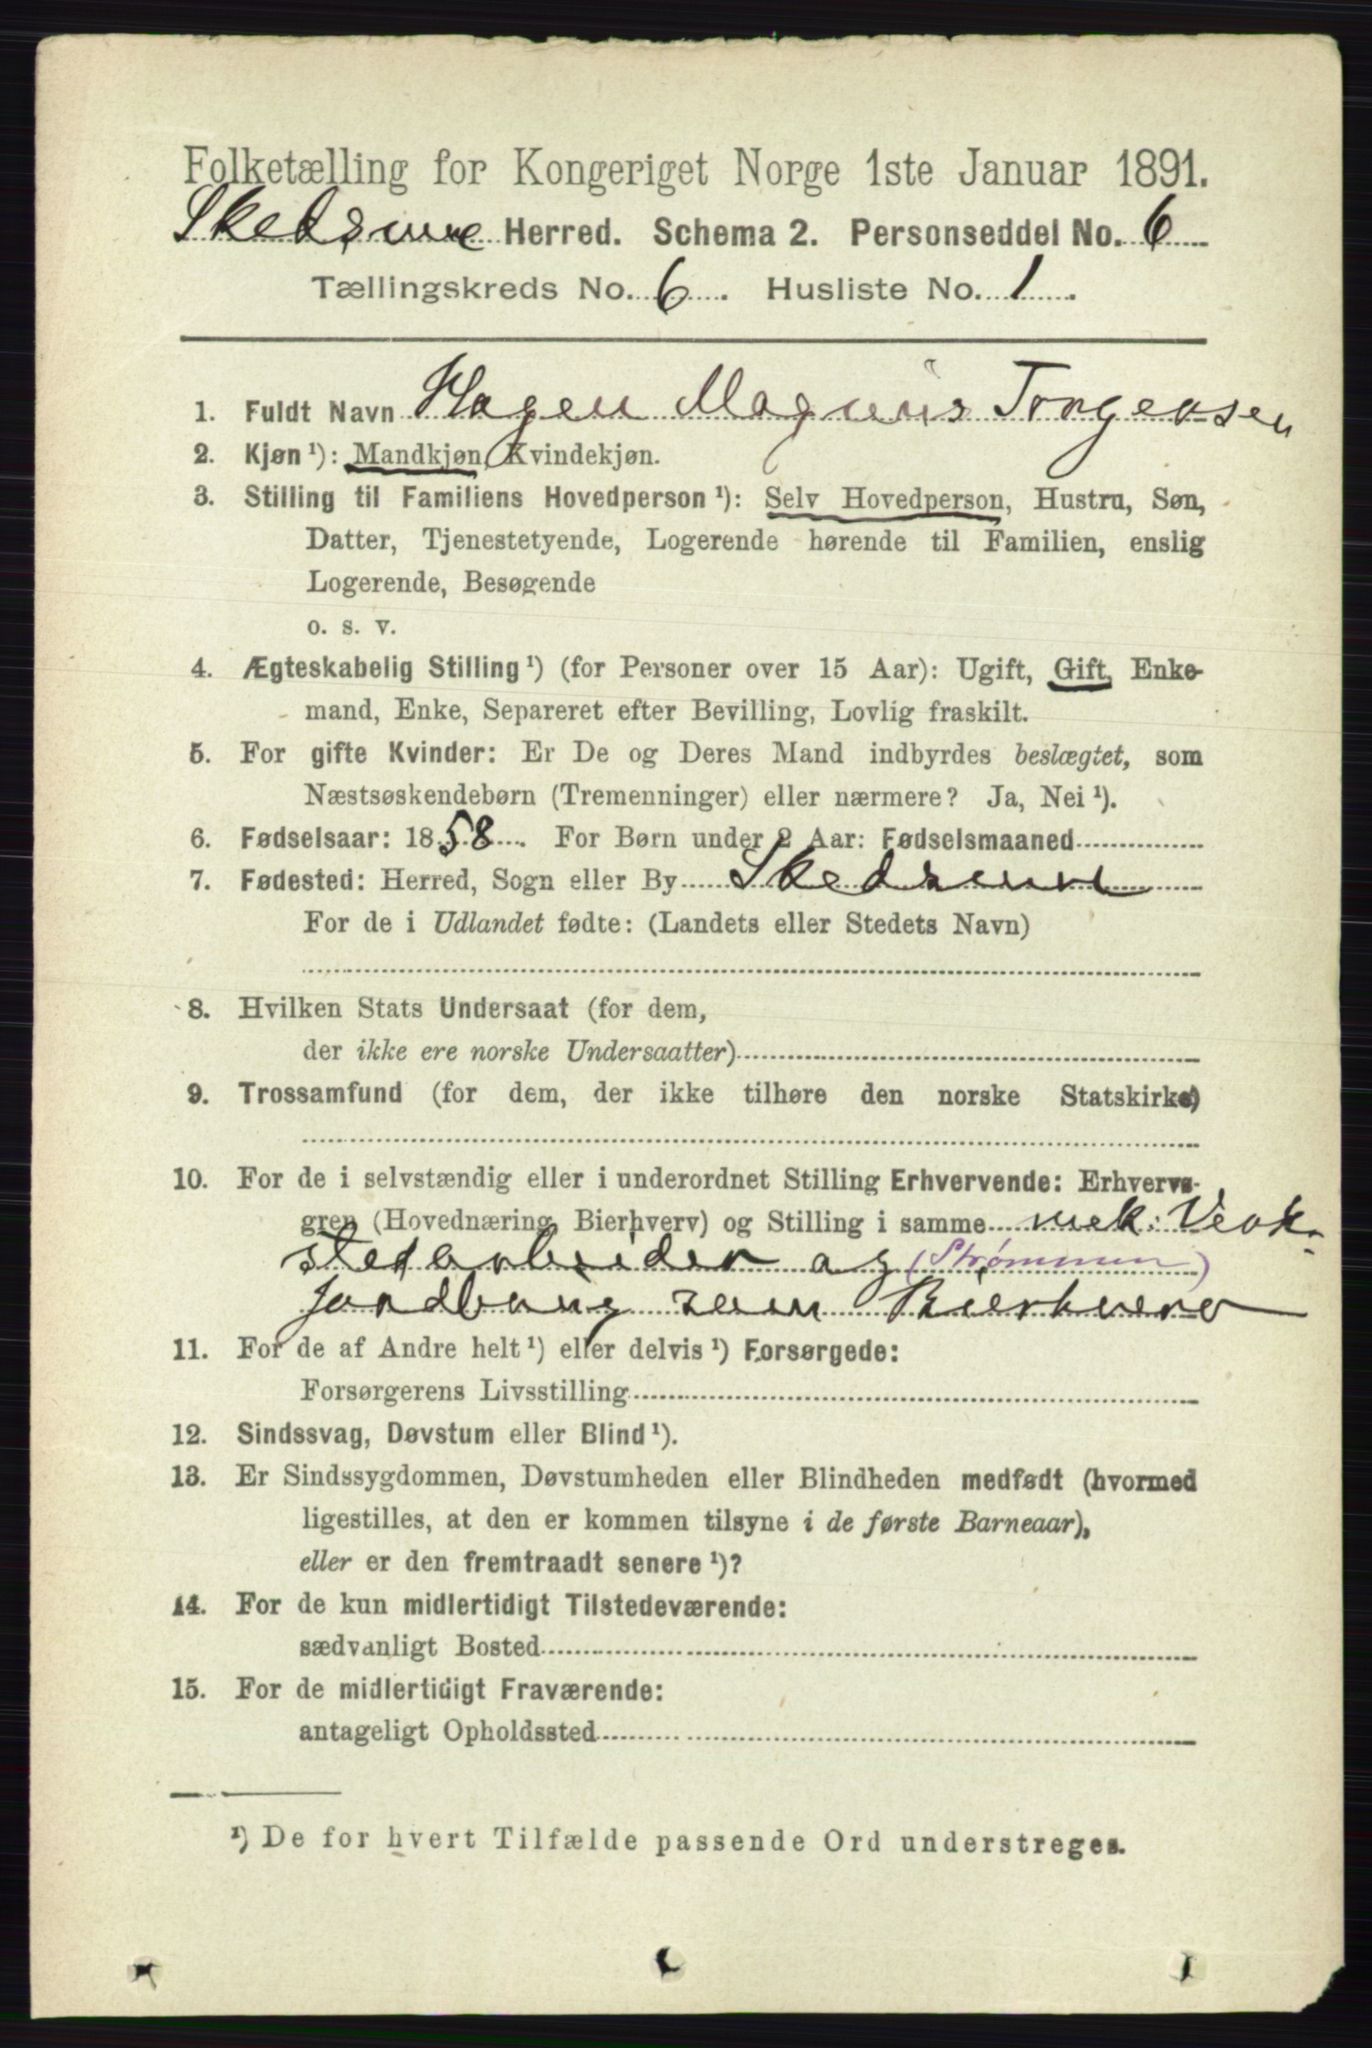 Folketælling for Kongeriget Norge 1ste Januar 1891.
Skedsmo Herred. Schema 2. Personseddel No. 6
Tællingskreds No. 6. Husliste No. 1.
1. Fuldt Navn Hagen Magnus Torgersen
2. Kjøn ¹): Mandkjøn, Kvindekjøn.
3. Stilling til Familiens Hovedperson ¹): Selv Hovedperson, Hustru, Søn,
Datter, Tjenestetyende, Logerende hørende til Familien, enslig
Logerende, Besøgende
o. s. v.
4. Ægteskabelig Stilling ¹) (for Personer over 15 Aar): Ugift, Gift, Enke-
mand, Enke, Separeret efter Bevilling, Lovlig fraskilt.
5. For gifte Kvinder: Er De og Deres Mand indbyrdes beslægtet, som
Næstsøskendebørn (Tremenninger) eller nærmere? Ja, Nei ¹).
6. Fødselsaar: 1858. For Børn under 2 Aar: Fødselsmaaned
7. Fødested: Herred, Sogn eller By Skedsmo
For de i Udlandet fødte: (Landets eller Stedets Navn)
8. Hvilken Stats Undersaat (for dem,
der ikke ere norske Undersaatter)
9. Trossamfund (for dem, der ikke tilhøre den norske Statskirke)
10. For de i selvstændig eller i underordnet Stilling Erhvervende: Erhvervs-
gren (Hovednæring, Bierhverv) og Stilling i samme mek: Verk-
stedarbeider og (Strømmen)
Jordbrug som Bierhverv
11. For de af Andre helt ¹) eller delvis ¹) Forsørgede:
Forsørgerens Livsstilling
12. Sindssvag, Døvstum eller Blind ¹).
13. Er Sindssygdommen, Døvstumheden eller Blindheden medfødt (hvormed
ligestilles, at den er kommen tilsyne i de første Barneaar),
eller er den fremtraadt senere ¹)?
14. For de kun midlertidigt Tilstedeværende:
sædvanligt Bosted
15. For de midlertidigt Fraværende:
antageligt Opholdssted
¹) De for hvert Tilfælde passende Ord understreges.